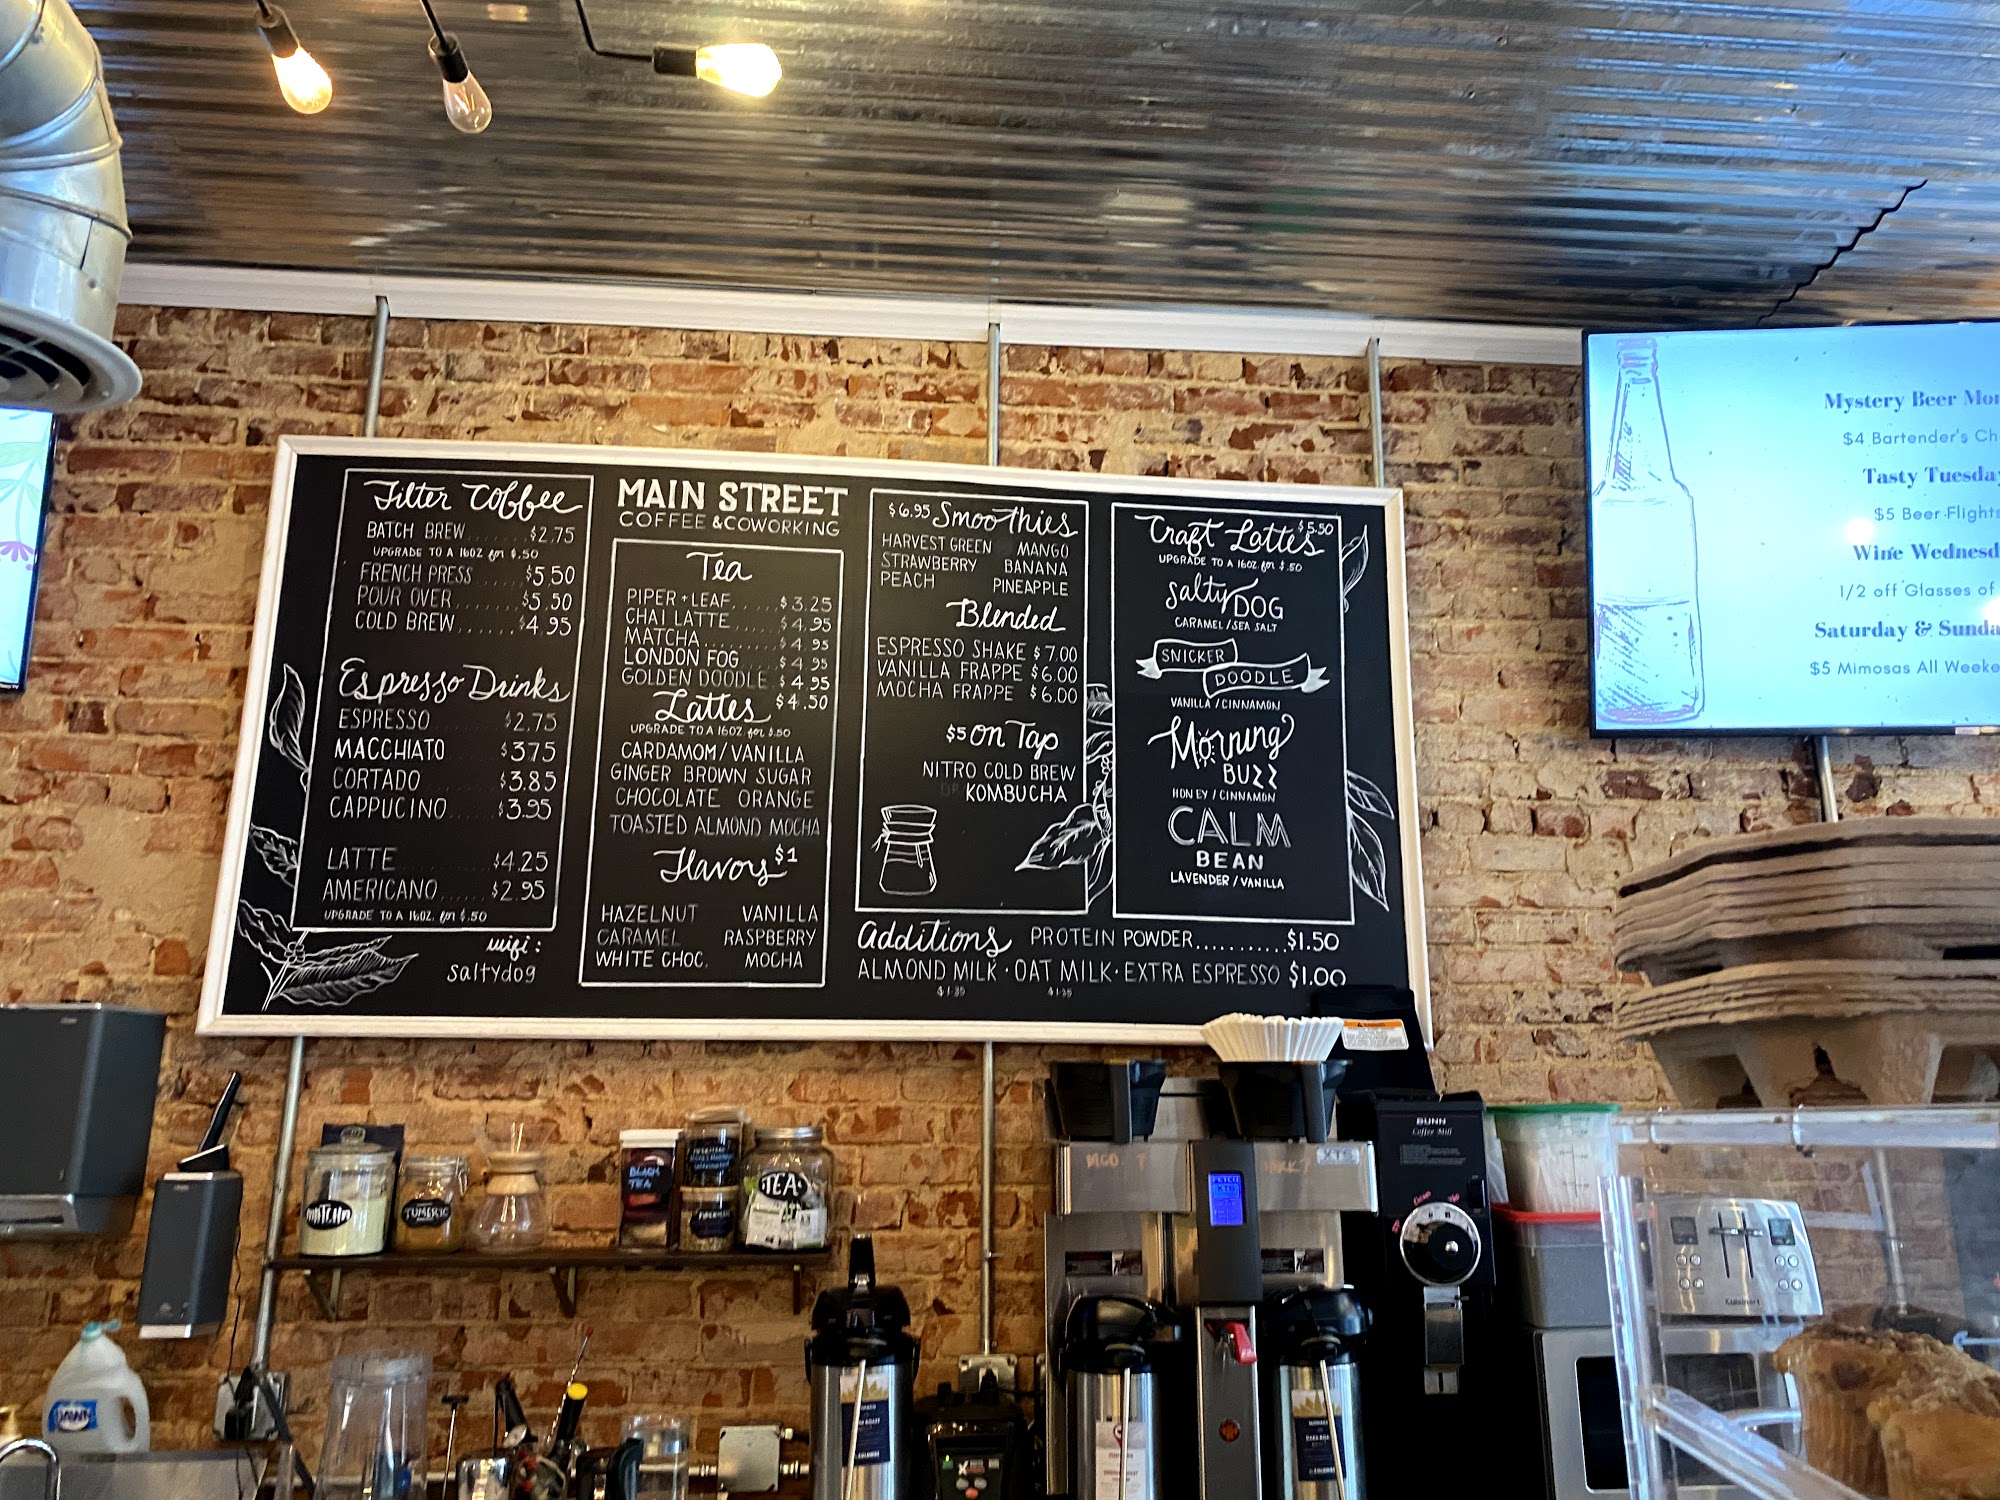 Filter Coffee
BATCH BREW.......$2.75
UPGRADE TO A 16OZ for $.50
FRENCH PRESS.....$5.50
POUR OVER........$5.50
COLD BREW.......$4.95
Espresso Drinks
ESPRESSO $2.75
MACCHIATO $3.75
CORTADO $3.85
CAPPUCINO....$3.95
LATTE $4.25
AMERICANO.....$2.95
UPGRADE TO A 16OZ. for $.50
wifi:
saltydog
MAIN STREET
COFFEE & COWORKING
Tea
PIPER + LEAF......$3.25
CHAI LATTE.....$4.95
MATCHA.........$4.95
LONDON FOG....$4.95
GOLDEN DOODLE.$4.95
Lattes $4.50
UPGRADE TO A 16OZ for $.50
CARDAMOM/VANILLA
GINGER BROWN SUGAR
CHOCOLATE ORANGE
TOASTED ALMOND MOCHA
Flavors $1
HAZELNUT VANILLA
CARAMEL RASPBERRY
WHITE CHOC. MOCHA
$6.95 Smoothies
HARVEST GREEN MANGO
STRAWBERRY BANANA
PEACH PINEAPPLE
Blended
ESPRESSO SHAKE $7.00
VANILLA FRAPPE $6.00
MOCHA FRAPPE $6.00
$5 On Tap
NITRO COLD BREW
KOMBUCHA
Craft Latte's $5.50
UPGRADE TO A 16OZ for $.50
Salty DOG
CARAMEL/SEA SALT
SNICKER
DOODLE
VANILLA/CINNAMON
Morning
BUZZ
HONEY/CINNAMON
CALM
BEAN
LAVENDER/VANILLA
Additions PROTEIN POWDER...........$1.50
ALMOND MILK · OAT MILK · EXTRA ESPRESSO $1.00
Mystery Beer Mo
$4 Bartender's Ch
Tasty Tuesday
$5 Beer Flights
Wine Wednesd
1/2 off Glasses of
Saturday & Sunda
$5 Mimosas All Weeke
MATCHA
TUMERIC
BLACK
TEA
TEA
DAWN
BUNN
Coffee Mill
FETCO
XTS
XTS
Cuisinart